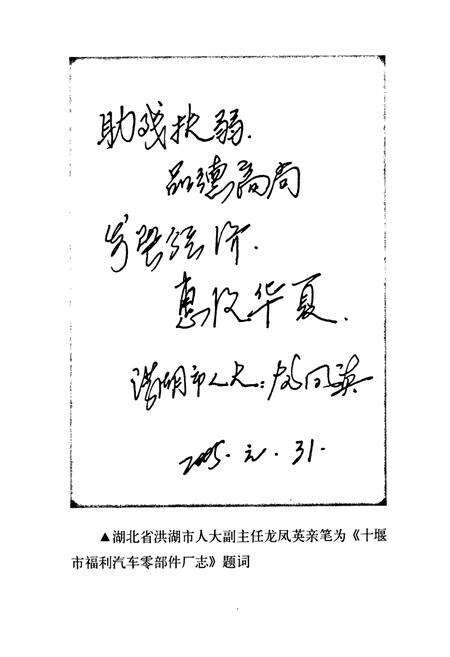 助残扶弱.
品德高尚
发展经济.
惠及华夏.
洪湖市人大:龙凤英
2005.元.31.
▲湖北省洪湖市人大副主任龙凤英亲笔为《十堰
市福利汽车零部件厂志》题词